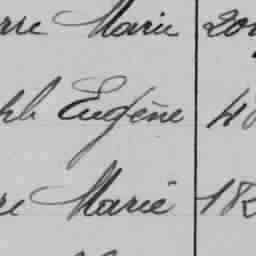 rre Marie 20
ph Eugène 48
re Marie 18